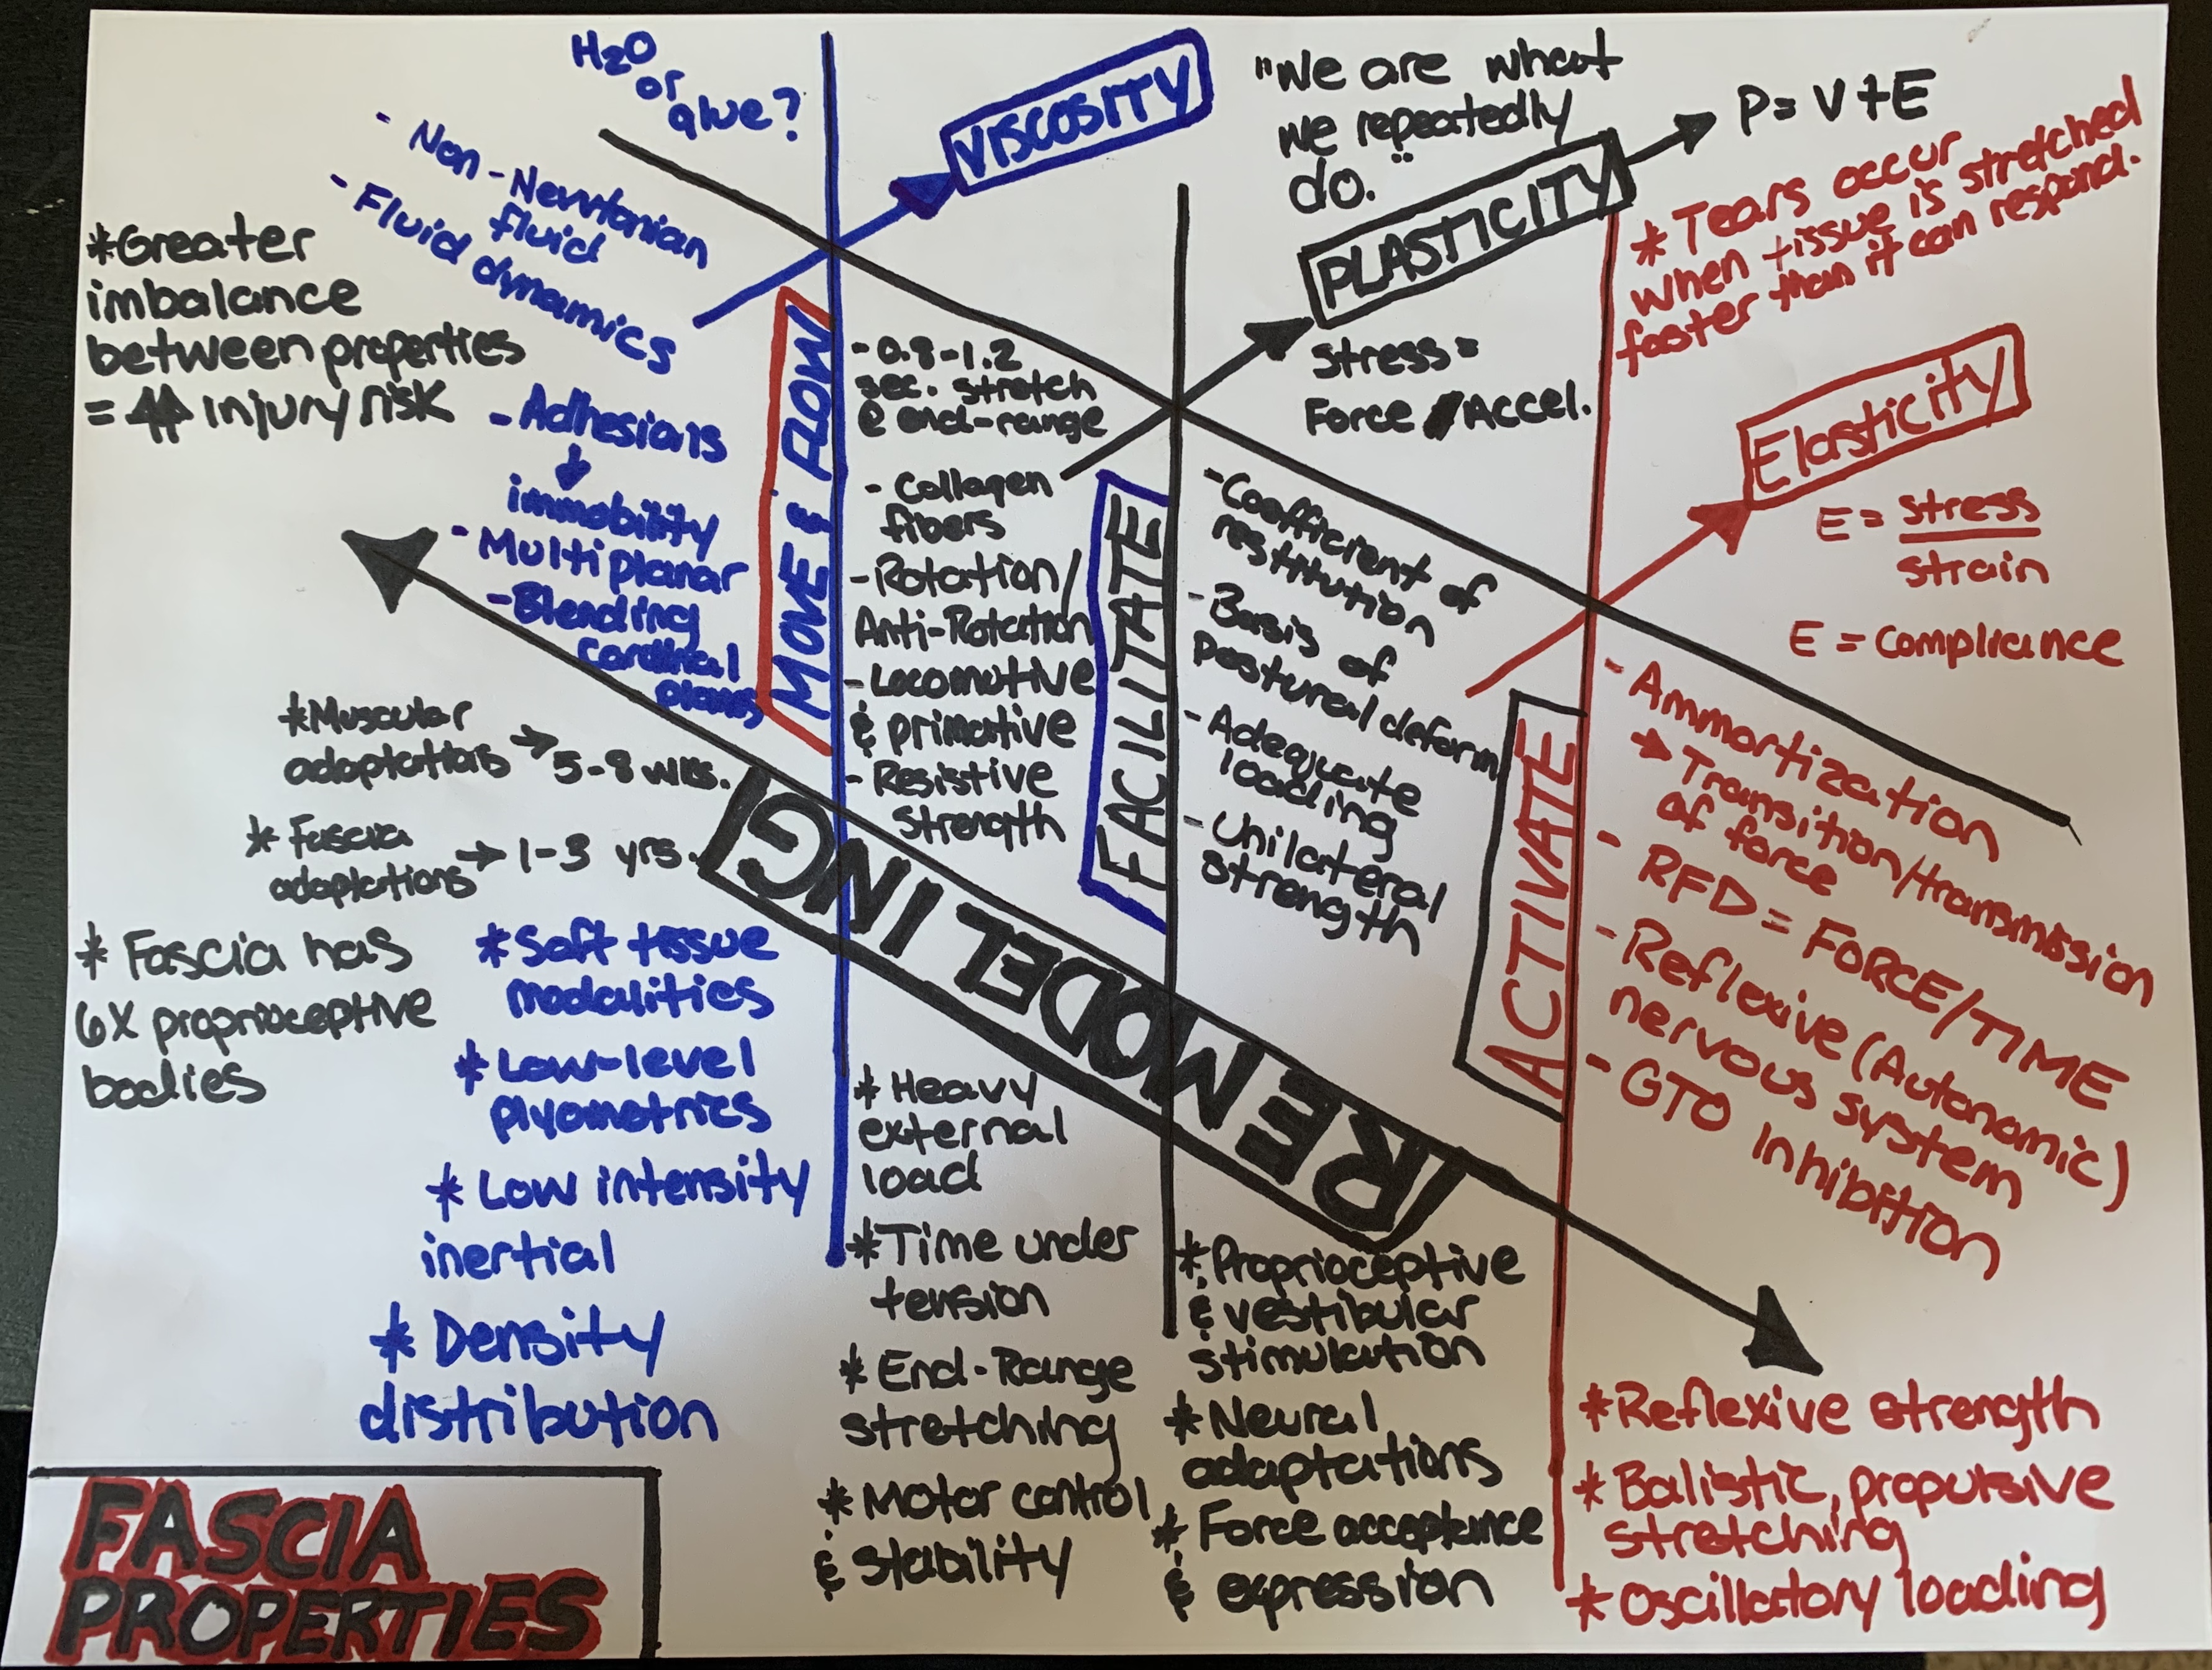 H2O
or
glue?
- Non-Newtonian
fluid
- Fluid dynamics
VISCOSITY
"We are what
we repeatedly
do."
PLASTICITY
P = V + E
* Tears occur
when tissue is stretched
faster than it can respond.
*Greater
imbalance
between properties
= ⇈ injury risk
- Adhesions
↓
immobility
- Multiplanar
- Blending
cardinal
planes
MOVE & FLOW
- 0.8-1.2
sec. stretch
@ end-range
- Collagen
fibers
- Rotation/
Anti-Rotation
- Locomotive
& primative
- Resistive
strength
FACILITATE
Stress =
Force / Accel.
- Coefficient of
restitution
- Basis of
postural deform
- Adequate
loading
- Unilateral
strength
Elasticity
E = stress
strain
E = Compliance
ACTIVATE
- Ammortization
→ Transition/transmission
of force
- RFD = FORCE/TIME
- Reflexive (Autonomic)
nervous system
- GTO inhibition
*Muscular
adaptations → 5-8 wks.
* Fascia
adaptations → 1-3 yrs.
* Fascia has
6X proprioceptive
bodies
REMODELING
* Soft tissue
modalities
* Low-level
plyometrics
* Low intensity
inertial
* Density
distribution
* Heavy
external
load
*Time under
tension
* End-Range
stretching
* Motor control
& stability
*Proprioceptive
& vestibular
stimulation
*Neural
adaptations
* Force acceptance
& expression
*Reflexive strength
* Balistic, propursive
stretching
* Oscillatory loading
FASCIA
PROPERTIES